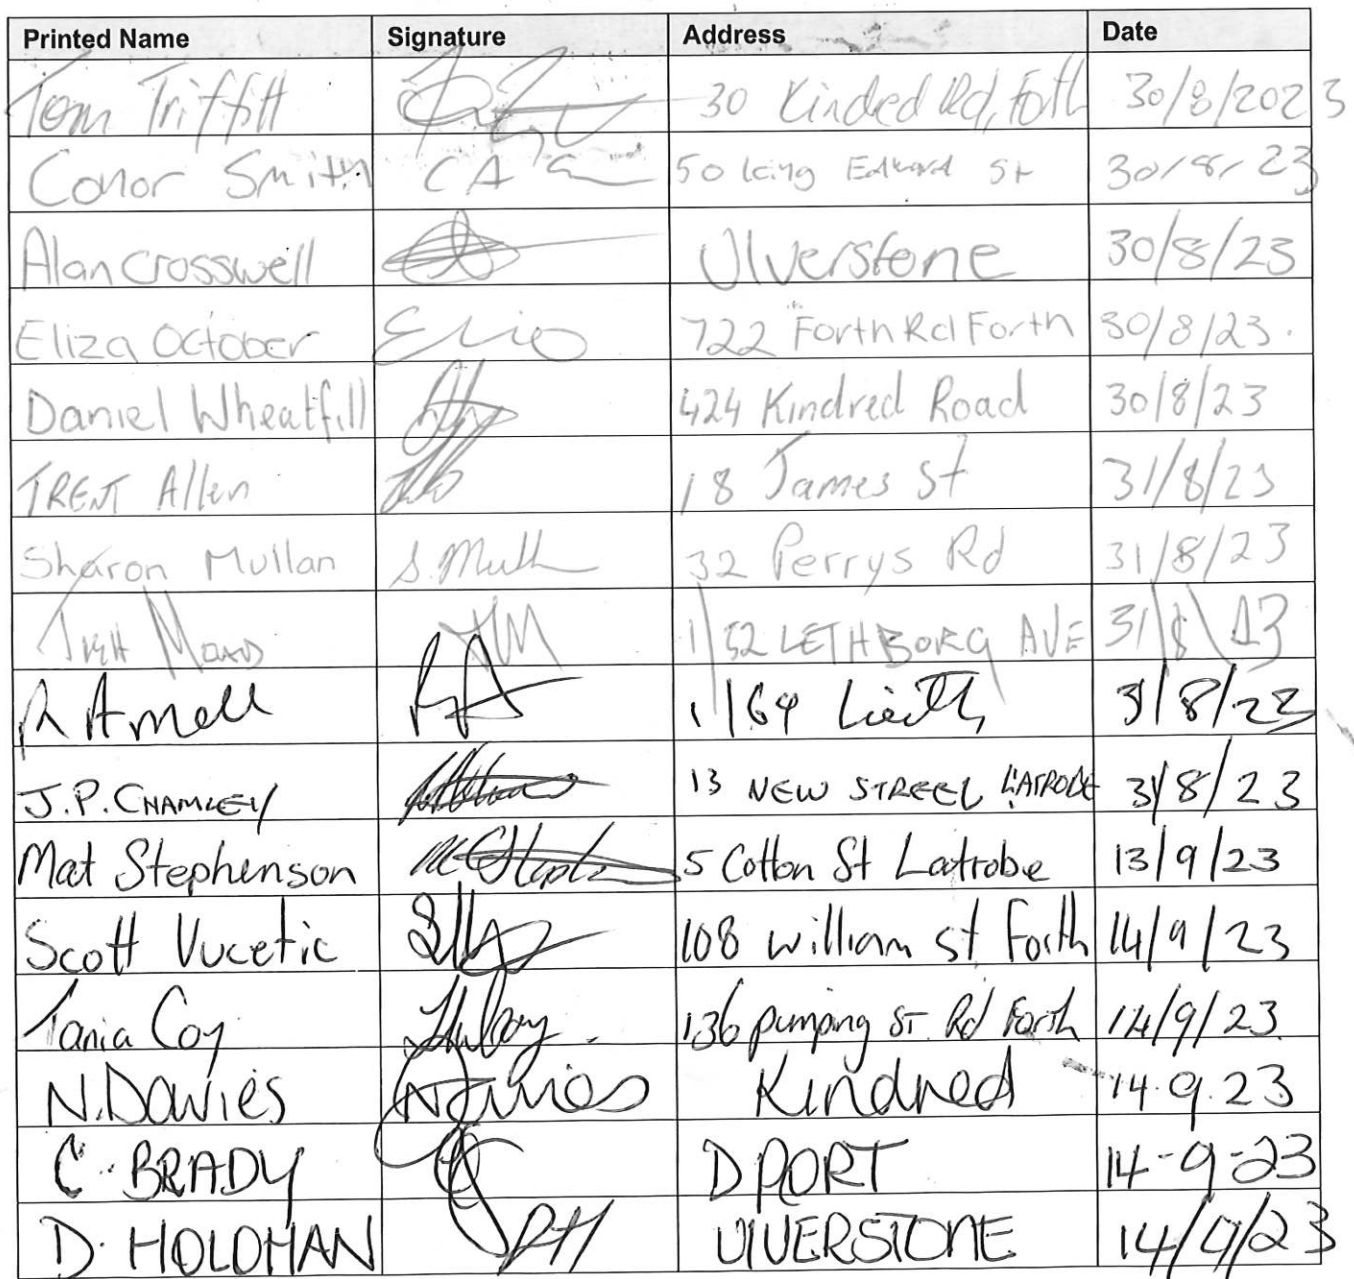 Printed Name Signature Address Date
Tom Triffitt 30 Kindred Rd, Forth 30/8/2023
Conor Smith CA S 50 King Edward St 30/8/23
Alan Crosswell Ulverstone 30/8/23
Eliza October 722 Forth Rd Forth 30/8/23.
Daniel Wheatfill 424 Kindred Road 30/8/23
TRENT Allen 18 James St 31/8/23
Sharon Mullan S. Mull 32 Perrys Rd 31/8/23
JM 1/52 LETHBORG AVE 31/8/23
R Arnell RA 1/64 Lieith 31/8/23
J.P. CHAMLEY 13 NEW STREET LATROBE 31/8/23
Mat Stephenson 5 Cotton St Latrobe 13/9/23
Scott Vucetic 108 William St Forth 14/9/23
Tania Coy 136 pumping St Rd Forth 14/9/23
N. Davies NDavies Kindred 14.9.23
C. BRADY DPORT 14-9-23
D. HOLDMAN DH ULVERSTONE 14/9/23